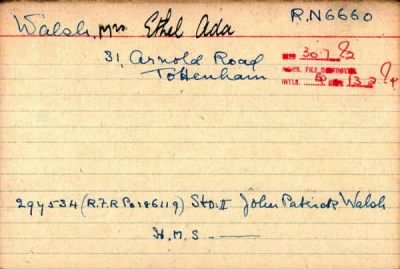 Walsh, Mrs Ethel Ada R.N6660
31, Arnold Road
Tottenham
30.7.
13.2.
294534 (R.F.R Po 186119) Sto. II John Patrick Walsh
H.M.S —